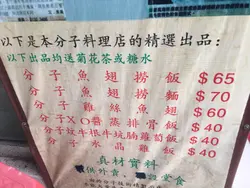 以下是本分子料理店的精選出品：
以下出品均送菊花茶或糖水
分子魚翅撈飯 $65
分子魚翅撈麵 $70
分子雞絲魚翅 $60
分子XO醬蒸排骨飯 $40
分子炆牛根牛坑腩蘿蔔飯 $40
分子水晶雞飯 $40
真材實料
供外賣, 堂食